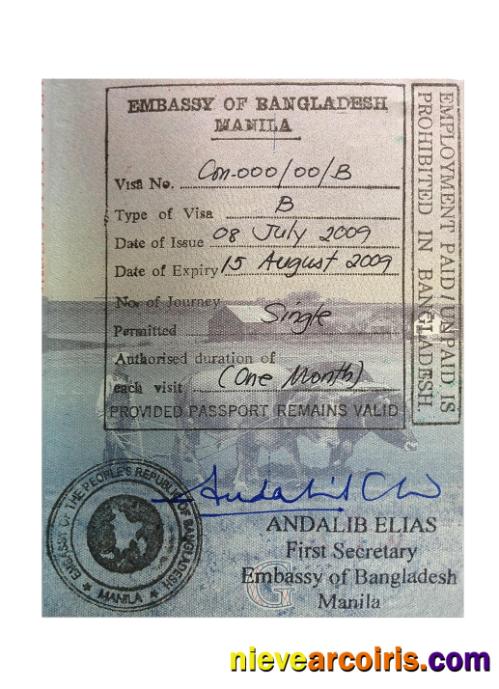 EMBASSY OF BANGLADESH
MANILA
Visa No. Con-000/00/B
Type of Visa B
Date of Issue 08 July 2009
Date of Expiry 15 August 2009
No. of Journey
Permitted Single
Authorised duration of
each visit (One Month)
PROVIDED PASSPORT REMAINS VALID
EMPLOYMENT PAID/UNPAID IS
PROHIBITED IN BANGLADESH.
EMBASSY OF THE PEOPLE'S REPUBLIC OF BANGLADESH
★ MANILA ★
ANDALIB ELIAS
First Secretary
Embassy of Bangladesh
Manila
G
nievearcoiris.com